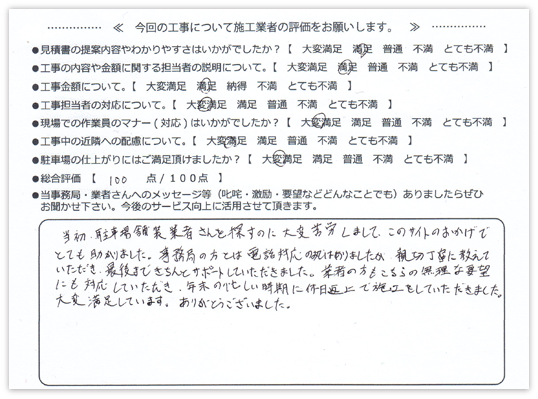 ≪ 今回の工事について施工業者の評価をお願いします。 ≫
●見積書の提案内容やわかりやすさはいかがでしたか?【 大変満足 満足 普通 不満 とても不満 】
●工事の内容や金額に関する担当者の説明について。【 大変満足 満足 普通 不満 とても不満 】
●工事金額について。【 大変満足 満足 納得 不満 とても不満 】
●工事担当者の対応について。【 大変満足 満足 普通 不満 とても不満 】
●現場での作業員のマナー(対応)はいかがでしたか?【 大変満足 満足 普通 不満 とても不満 】
●工事中の近隣への配慮について。【 大変満足 満足 普通 不満 とても不満 】
●駐車場の仕上がりにはご満足頂けましたか?【 大変満足 満足 普通 不満 とても不満 】
●総合評価【 100 点/100点 】
●当事務局・業者さんへのメッセージ等(叱咤・激励・要望などどんなことでも)ありましたらぜひ
お聞かせ下さい。今後のサービス向上に活用させて頂きます。
当初、駐車場舗装業者さんを探すのに大変苦労しまして、このサイトのおかげで
とても助かりました。事務局の方とは電話対応のみはありましたが、親切丁寧に教えて
いただき、最後まできちんとサポートしていただきました。業者の方もこちらの無理な要望
にも対応していただき、年末の忙しい時期に休日返上で施工をしていただきました。
大変満足しています。ありがとうございました。